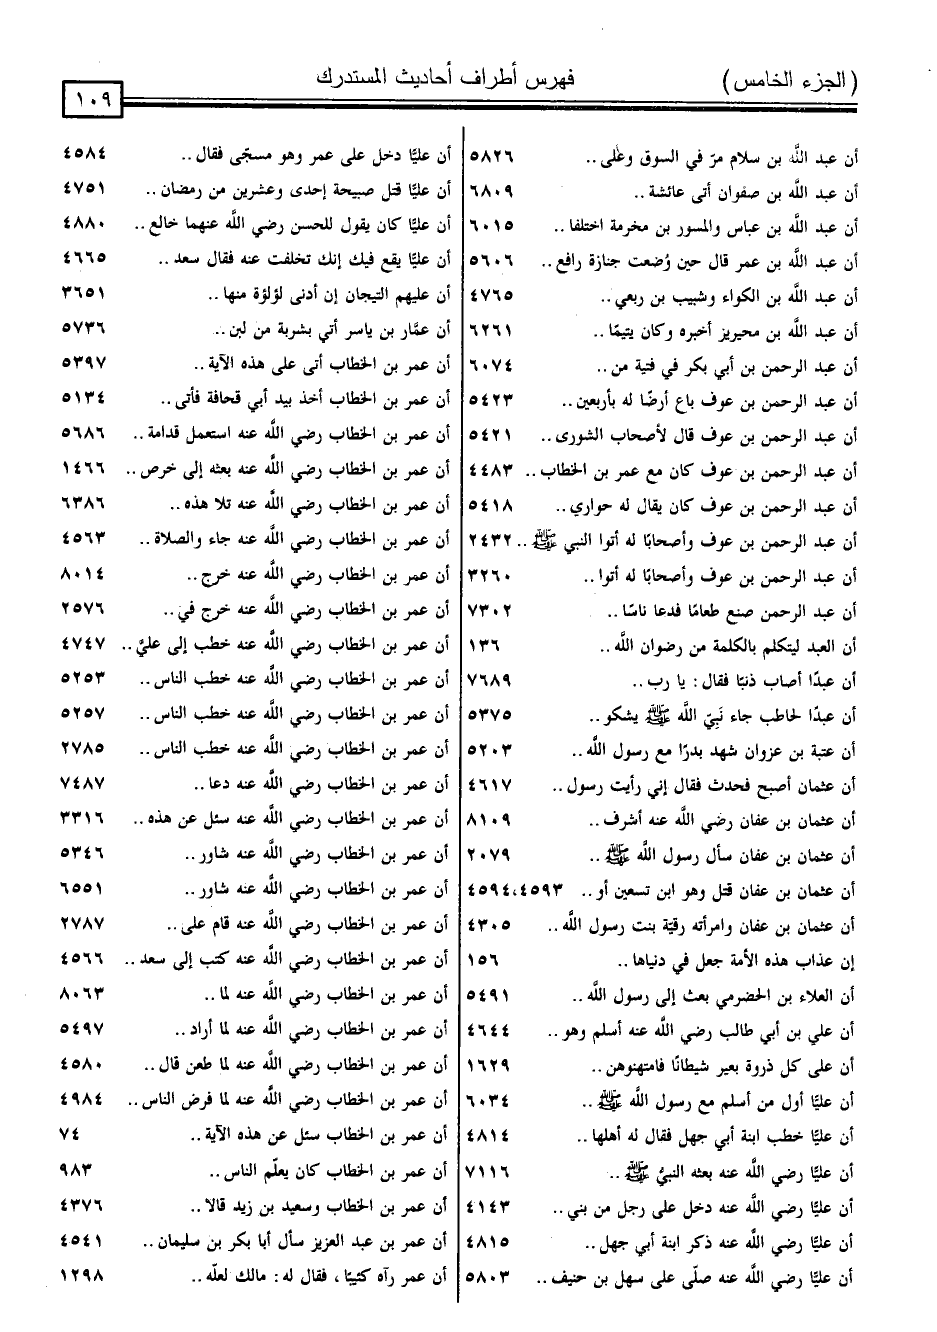 (الجزء الخامس)
فهرس أطراف أحاديث المستدرك
١٠٩
أن عبد اللَّه بن سلام مرّ في السوق وعلى .. ٥٨٢٦
أن عبد اللَّه بن صفوان أتى عائشة .. ٦٨٠٩
أن عبد اللَّه بن عباس والمسور بن مخرمة اختلفا .. ٦٠١٥
أن عبد اللَّه بن عمر قال حين وُضعت جنازة رافع .. ٥٦٠٦
أن عبد اللَّه بن الكواء وشبيب بن ربعي .. ٤٧٦٥
أن عبد اللَّه بن محيريز أخبره وكان يتيمًا .. ٦٢٦١
أن عبد الرحمن بن أبي بكر في فتية من .. ٦٠٧٤
أن عبد الرحمن بن عوف باع أرضًا له بأربعين .. ٥٤٢٣
أن عبد الرحمن بن عوف قال لأصحاب الشورى .. ٥٤٢١
أن عبد الرحمن بن عوف كان مع عمر بن الخطاب .. ٤٤٨٣
أن عبد الرحمن بن عوف كان يقال له حواري .. ٥٤١٨
أن عبد الرحمن بن عوف وأصحابًا له أتوا النبي ﷺ .. ٢٤٣٢
أن عبد الرحمن بن عوف وأصحابًا له أتوا .. ٣٢٦٠
أن عبد الرحمن صنع طعامًا فدعا ناسًا .. ٧٣٠٢
أن العبد ليتكلم بالكلمة من رضوان اللَّه .. ١٣٦
أن عبدًا أصاب ذنبًا فقال : يا رب .. ٧٦٨٩
أن عبدًا لحاطب جاء نَبِيّ اللَّه ﷺ يشكو .. ٥٣٧٥
أن عتبة بن عزوان شهد بدرًا مع رسول اللَّه .. ٥٢٠٣
أن عثمان أصبح فحدث فقال إني رأيت رسول .. ٤٦١٧
أن عثمان بن عفان رضي اللَّه عنه أشرف .. ٨١٠٩
أن عثمان بن عفان سأل رسول اللَّه ﷺ .. ٢٠٧٩
أن عثمان بن عفان قتل وهو ابن تسعين أو .. ٤٥٩٣،٤٥٩٤
أن عثمان بن عفان وامرأته رقيّة بنت رسول اللَّه .. ٤٣٠٥
إن عذاب هذه الأمة جعل في دنياها .. ١٥٦
أن العلاء بن الحضرمي بعث إلى رسول اللَّه .. ٥٤٩١
أن علي بن أبي طالب رضي اللَّه عنه أسلم وهو .. ٤٦٤٤
أن على كل ذروة بعير شيطانًا فامتهنوهن .. ١٦٢٩
أن عليًّا أول من أسلم مع رسول اللَّه ﷺ .. ٦٠٣٤
أن عليًّا خطب ابنة أبي جهل فقال له أهلها .. ٤٨١٤
أن عليًّا رضي اللَّه عنه بعثه النبيُّ ﷺ .. ٧١١٦
أن عليًّا رضي اللَّه عنه دخل على رجل من بني .. ٤١٤٣
أن عليًّا رضي اللَّه عنه ذكر ابنة أبي جهل .. ٤٨١٥
أن عليًّا رضي اللَّه عنه صلّى على سهل بن حنيف .. ٥٨٠٣
أن عليًّا دخل على عمر وهو مسجّى فقال .. ٤٥٨٤
أن عليًّا قتل صبيحة إحدى وعشرين من رمضان .. ٤٧٥١
أن عليًّا كان يقول للحسن رضي اللَّه عنهما خالع .. ٤٨٨٠
أن عليًّا يقع فيك إنك تخلفت عنه فقال سعد .. ٤٦٦٥
أن عليهم التيجان إن أدنى لؤلؤة منها .. ٣٦٥١
أن عمَّار بن ياسر أتي بشربة من لبن .. ٥٧٣٦
أن عمر بن الخطاب أتى على هذه الآية .. ٥٣٩٧
أن عمر بن الخطاب أخذ بيد أبي قحافة فأتى .. ٥١٣٤
أن عمر بن الخطاب رضي اللَّه عنه استعمل قدامة .. ٥٦٨٦
أن عمر بن الخطاب رضي اللَّه عنه بعثه إلى خرص .. ١٤٦٦
أن عمر بن الخطاب رضي اللَّه عنه تلا هذه .. ٦٣٨٦
أن عمر بن الخطاب رضي اللَّه عنه جاء والصلاة .. ٤٥٦٣
أن عمر بن الخطاب رضي اللَّه عنه خرج .. ٨٠١٤
أن عمر بن الخطاب رضي اللَّه عنه خرج في .. ٢٥٧٦
أن عمر بن الخطاب رضي اللَّه عنه خطب إلى عليٍّ .. ٤٧٤٧
أن عمر بن الخطاب رضي اللَّه عنه خطب الناس .. ٥٢٥٣
أن عمر بن الخطاب رضي اللَّه عنه خطب الناس .. ٥٢٥٧
أن عمر بن الخطاب رضي اللَّه عنه خطب الناس .. ٢٧٨٥
أن عمر بن الخطاب رضي اللَّه عنه دعا .. ٧٤٨٧
أن عمر بن الخطاب رضي اللَّه عنه سئل عن هذه .. ٣٣١٦
أن عمر بن الخطاب رضي اللَّه عنه شاور .. ٥٣٤٦
أن عمر بن الخطاب رضي اللَّه عنه شاور .. ٦٥٥١
أن عمر بن الخطاب رضي اللَّه عنه قام على .. ٢٧٨٧
أن عمر بن الخطاب رضي اللَّه عنه كتب إلى سعد .. ٤٥٦٦
أن عمر بن الخطاب رضي اللَّه عنه لما .. ٨٠٦٣
أن عمر بن الخطاب رضي اللَّه عنه لما أراد .. ٥٤٩٧
أن عمر بن الخطاب رضي اللَّه عنه لما طعن قال .. ٤٥٨٠
أن عمر بن الخطاب رضي اللَّه عنه لما فرض الناس .. ٤٩٨٤
أن عمر بن الخطاب سئل عن هذه الآية .. ٧٤
أن عمر بن الخطاب كان يعلّم الناس .. ٩٨٣
أن عمر بن الخطاب وسعيد بن زيد قالا .. ٤٣٧٦
أن عمر بن عبد العزيز سأل أبا بكر بن سليمان .. ٤٥٤١
أن عمر رآه كئيبًا ، فقال له : مالك لعلّه .. ١٢٩٨